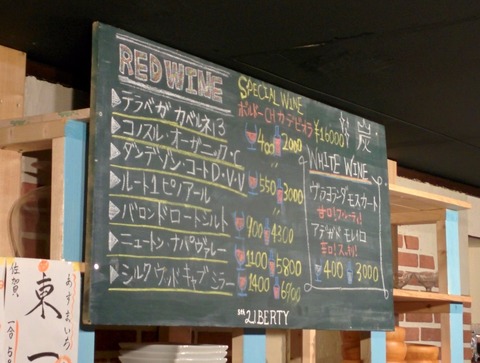 RED WINE
テラベガ カベルネ13
コノスル・オーガニック・C
400 2000
ダンデゾン・コートD・V・V
ルート1ピノアール
550 3000
バロンドロートシルト
900 4300
ニュートン ナパヴァレー
1100 5800
シルクウッド キャブミラー
1400 6900
SPECIAL WINE
ボルドーCH カデピオラ ¥16000
炭
WHITE WINE
ヴラヨランダ モスカート
甘口!フルーティ!
アデガデ モレイロ
辛口!スッキリ!
400 3000
LIBERTY
佐賀
あずまいち
東一
一合